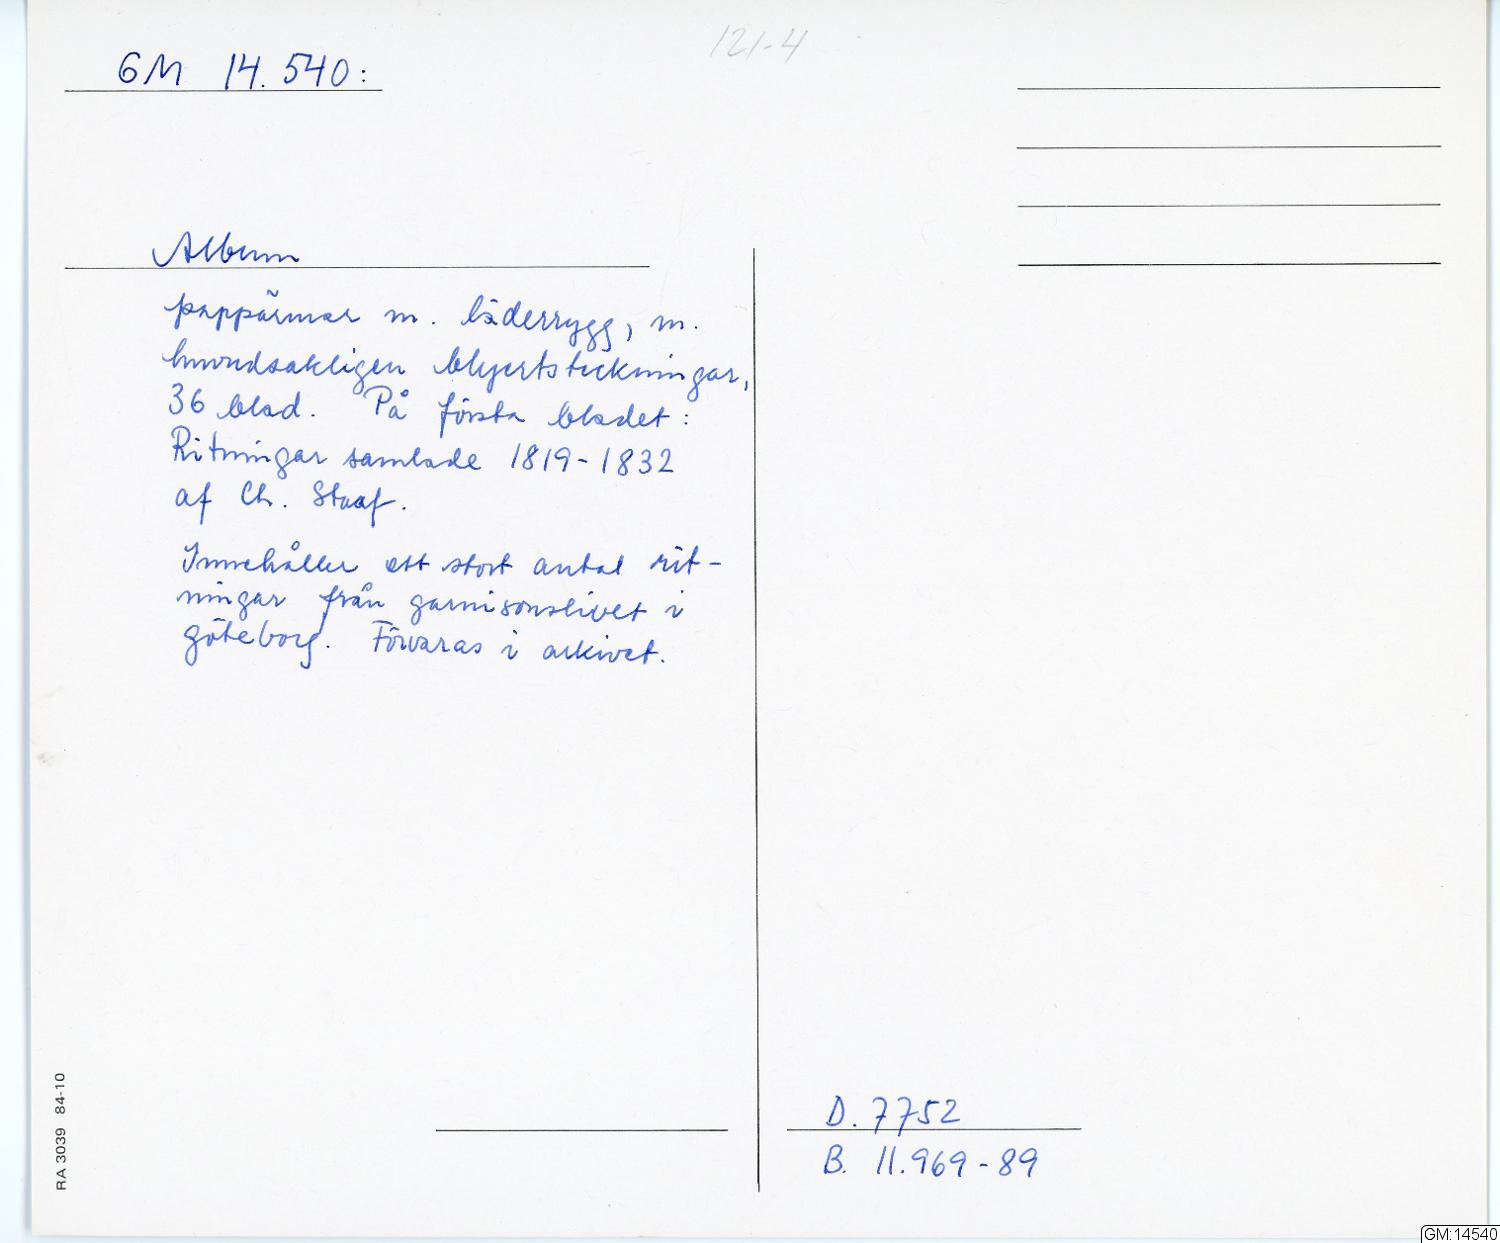 121-4
GM 14.540:
Album
pappärmar m. läderrygg, m.
huvudsakligen blyertsteckningar,
36 blad. På första bladet:
Ritningar samlade 1819-1832
af Ch. Staaf.
Innehåller ett stort antal rit-
ningar från garnisonslivet i
Göteborg. Förvaras i arkivet.
D. 7752
B. 11.969-89
RA 3039 84-10
GM:14540